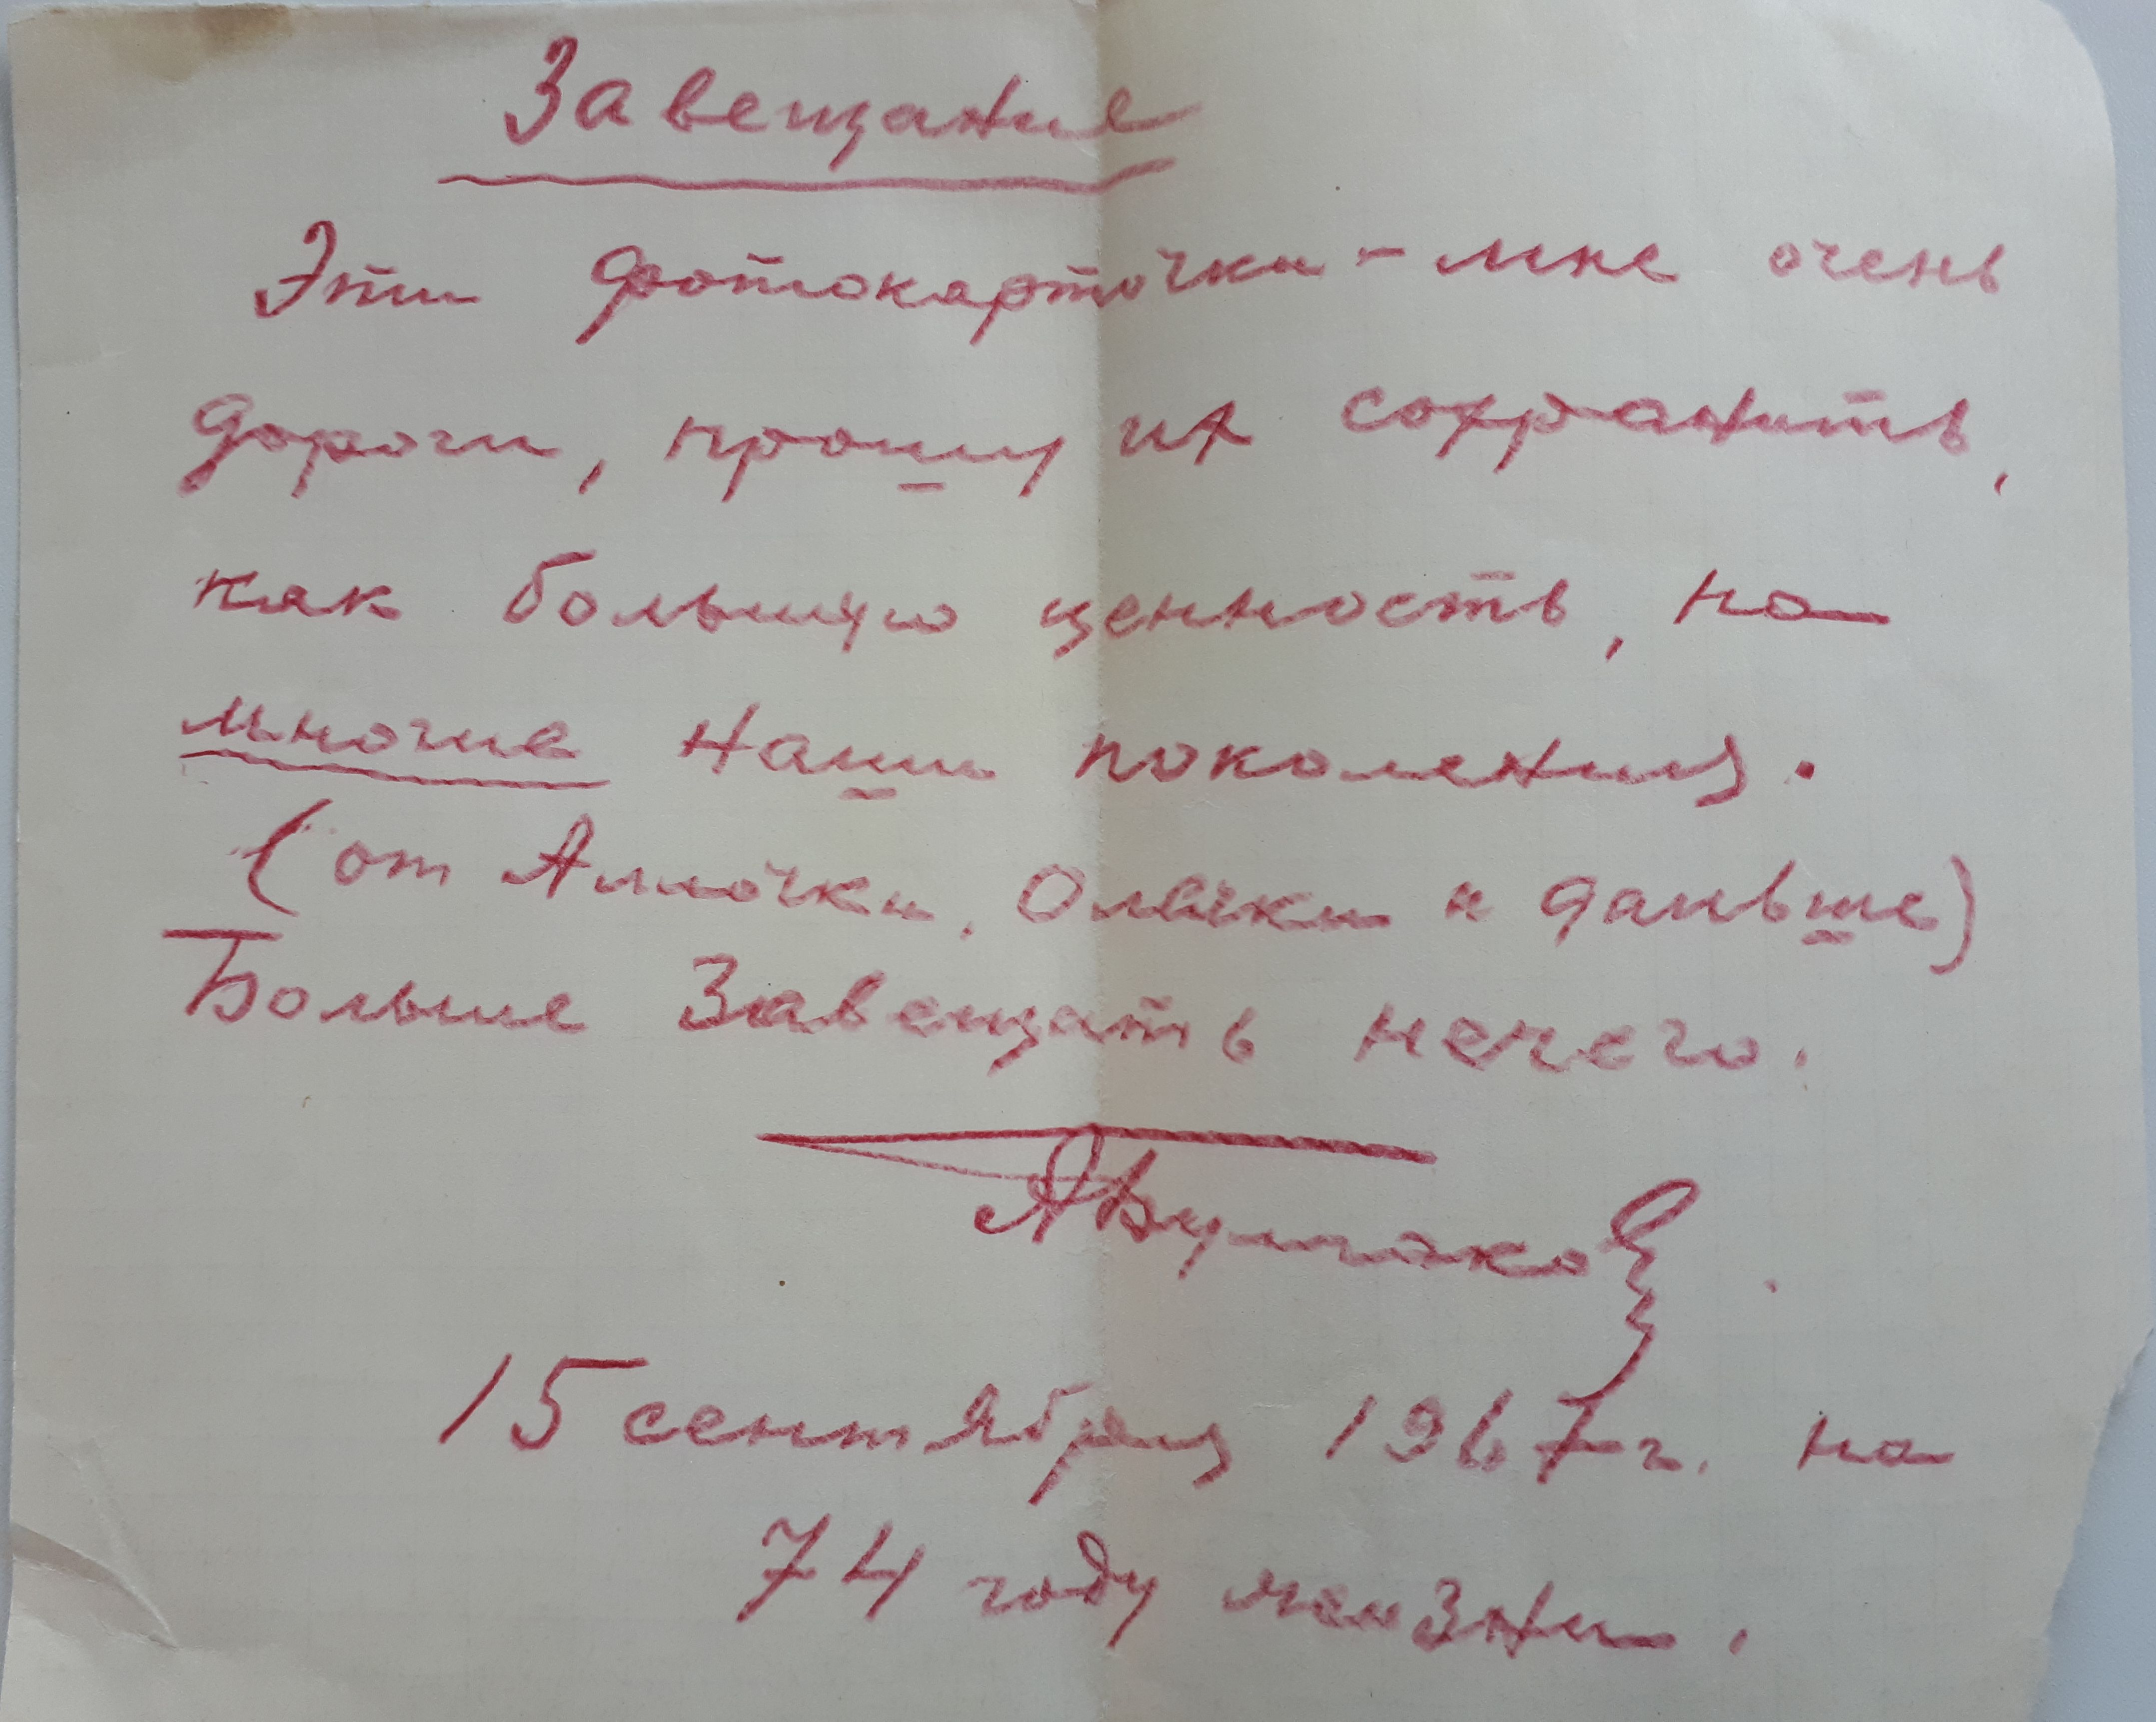 Завещание
Эти фотокарточки - мне очень
дороги, прошу их сохранить,
как большую ценность, на
многие наши поколения.
(от Аллочки, Олечки и дальше)
Больше Завещать нечего.
АБулгаков
15 сентября 1967 г. на
74 году жизни.